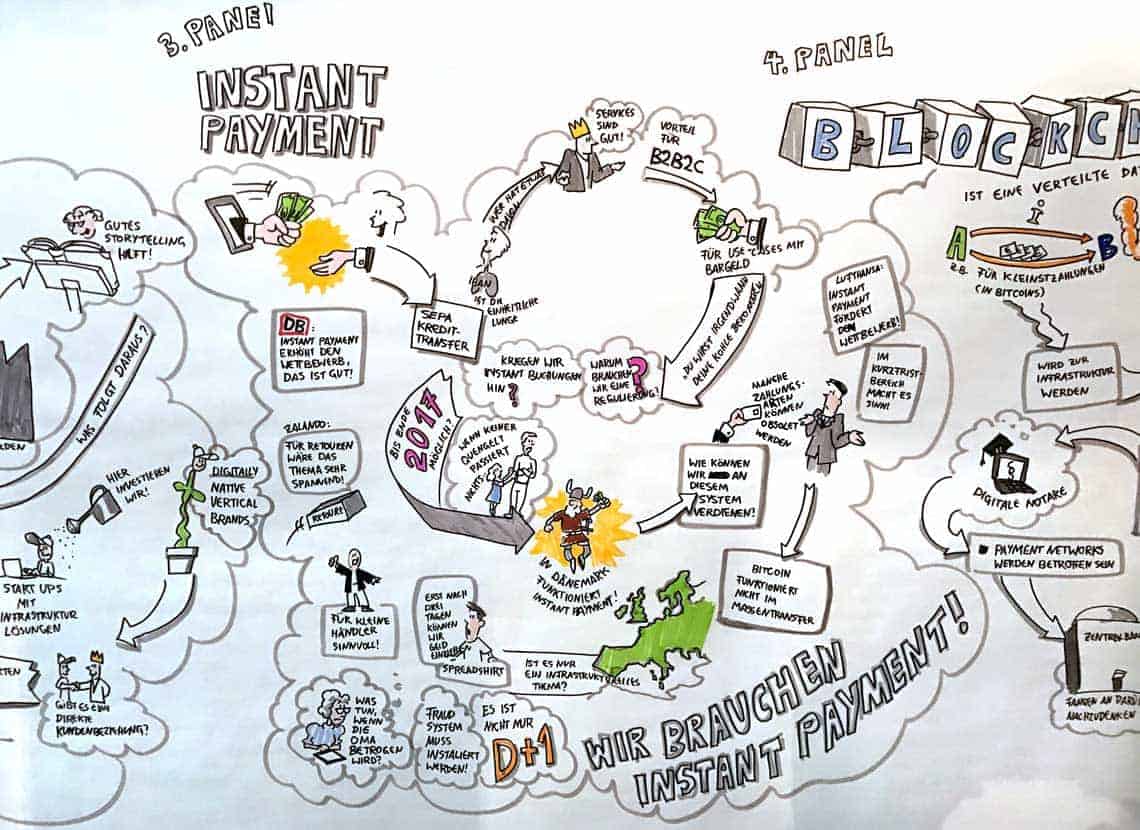 3. PANEL
INSTANT
PAYMENT
4. PANEL
BLOCKCH
GUTES
STORYTELLING
HILFT!
WAS FOLGT DARAUS?
LDEN
HIER
INVESTIEREN
WIR!
DIGITALLY
NATIVE
VERTICAL
BRANDS
START UPS
MIT
INFRASTRUKTUR
LÖSUNGEN
KTEN
GIBT ES EINE
DIREKTE
KUNDENBEZIEHUNG?
SEPA
KREDIT-
TRANSFER
DB:
INSTANT PAYMENT
ERHÖHT DEN
WETTBEWERB.
DAS IST GUT!
ZALANDO:
FÜR RETOUREN
WÄRE DAS
THEMA SEHR
SPANNEND!
RETOURE
FÜR KLEINE
HÄNDLER
SINNVOLL!
IBAN
IST DIE
EINHEITLICHE
LUNGE
WER HAT ETWAS
DAVON
SERVICES
SIND
GUT!
VORTEIL
FÜR
B2B2C
FÜR USE-CASES MIT
BARGELD
"DU WIRST IRGENDWANN
DEINE KOHLE BEKOMMEN"
KRIEGEN WIR
INSTANT BUCHUNGEN
HIN?
WARUM
BRAUCHEN
WIR EINE
REGULIERUNG?
BIS ENDE
2017
MÖGLICH?
WENN KEINER
QUENGELT
PASSIERT
NICHTS
IN DÄNEMARK
FUNKTIONIERT
INSTANT PAYMENT!
WIE KÖNNEN
WIR AN
DIESEM
SYSTEM
VERDIENEN?
MANCHE
ZAHLUNGS-
ARTEN
KÖNNEN
OBSOLET
WERDEN
LUFTHANSA:
INSTANT
PAYMENT
FÖRDERT
DEN
WETTBEWERB!
IM
KURZFRIST-
BEREICH
MACHT ES
SINN!
BITCOIN
FUNKTIONIERT
NICHT IM
MASSENTRANSFER
ERST NACH
DREI
TAGEN
KÖNNEN
WIR
GELD
SPREADSHIRT
IST ES NUR
EIN INFRASTRUKTURELLES
THEMA?
WAS
TUN,
WENN
DIE
OMA
BETROGEN
WIRD?
FRAUD
SYSTEM
MUSS
INSTALIERT
WERDEN!
ES IST
NICHT NUR
D+1
WIR BRAUCHEN
INSTANT PAYMENT!
IST EINE VERTEILTE DA
A
B
Z.B. FÜR KLEINSTZAHLUNGEN
(IN BITCOINS)
WIRD ZUR
INFRASTRUKTUR
WERDEN
DIGITALE NOTARE
PAYMENT NETWORKS
WERDEN BETROFFEN SEIN
ZENTRALBA
FANGEN AN DARÜ
NACHZUDENKEN